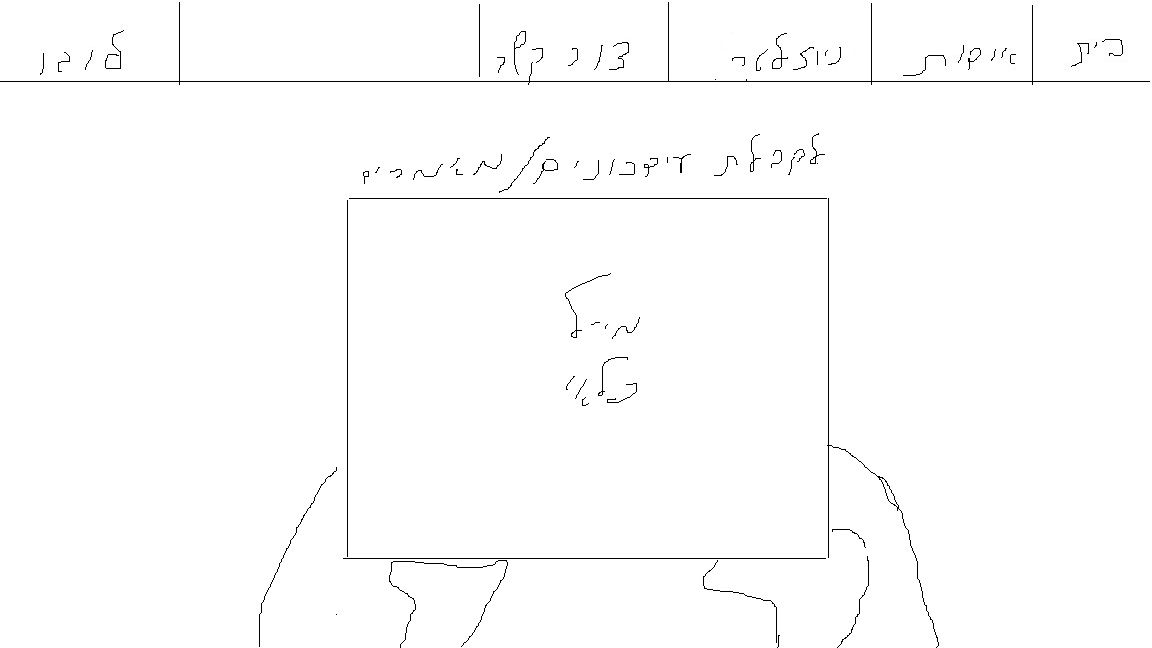 בית אודות ניוזלטר צור קשר לוגו
לקבלת עידכונים/מאמרים
מייל